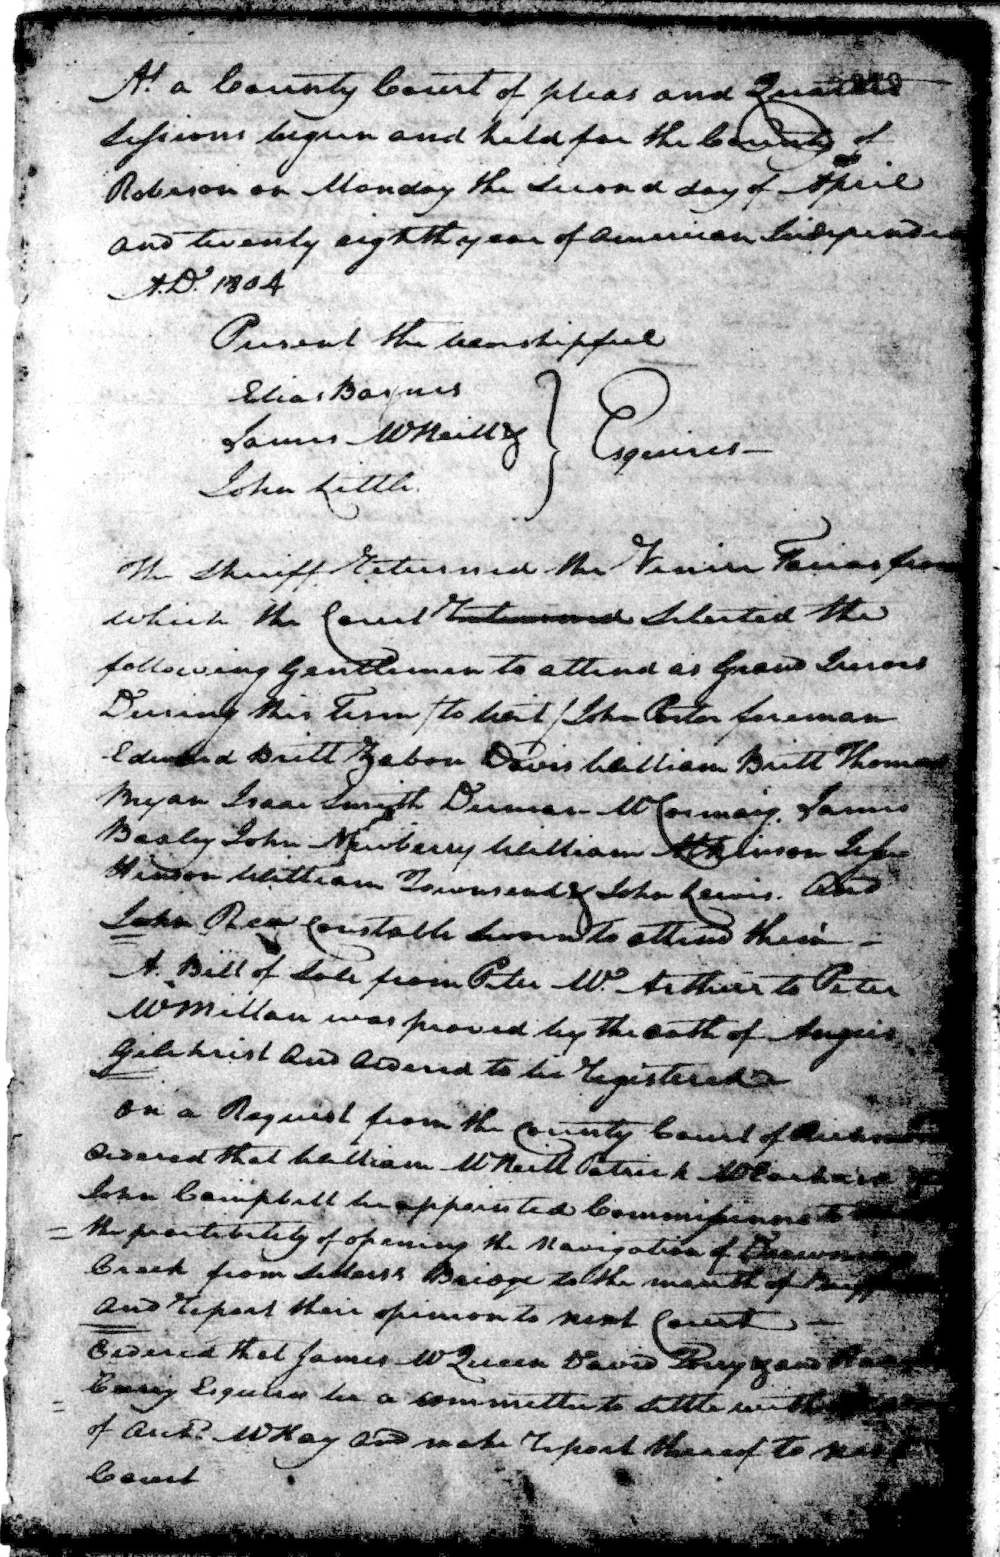 At a County Court of pleas and Quarter
Sessions begun and held for the County of
Robeson on Monday the Second day of April
and twenty eighth year of American Independence
A.D. 1804
Present the worshipful
Elias Barnes
James McNeill &
John Little
Esquires
The Sheriff Returned the Venire Facias from
which the Court Returned Selected the
following Gentlemen to attend as Grand Jurors
During this Term /to wit/ John Porter foreman
Edward Britt Zabon Davis William Britt Thomas
Bryan Isaac Smith Duncan McCormaig, James
Baaley John Newberry William Atkinson Jesse
Hinson William Townsend & John Lewis. And
John Rea Constable Sworn to attend them —
A. Bill of Sale from Peter Mc. Arthur to Peter
McMillan was proved by the oath of Angus
Gilchrist And ordered to be Registered
On a Request from the County Court of Richmond
Ordered that William McNeill Patrick
John Campbell be appointed Commissioners to
the practibility of opening the Navigation of Drowning
Creek from Sellarss Bridge to the mouth of
and Report their opinion to next Court —
Ordered that James McQueen David and
Esquires be a committee to Settle with
of Archd. McKay and make Report thereof to next
Court